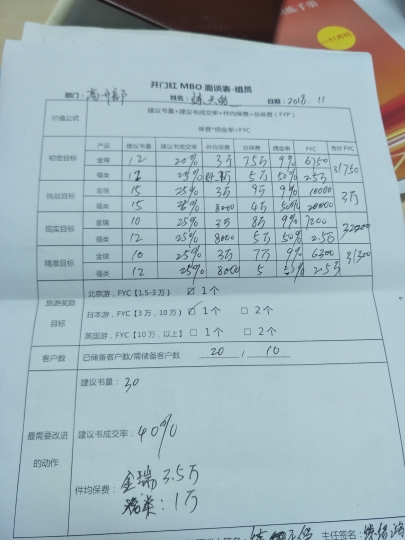 开门红 MBO 面谈表-组员
部门： 姓名： 日期：2018.11
价值公式 建议书量×建议书成交率×件均保费=总保费（FYP）
保费*佣金率=FYC
产品 建议书量 建议书成交率 件均保费 总保费 佣金率 FYC 合计 FYC
初定目标 金瑞 12 20% 3万 7.5万 9% 6750 31750
福类 12 25% 5万 50% 2.5万
挑战目标 金瑞 15 25% 3万 9万 9% 10000 3万
福类 15 8000 4万 50% 20000
现实目标 金瑞 10 25% 3万 8万 9% 7200 32200
福类 12 25% 8000 5万 50% 2.5万
精准目标 金瑞 10 25% 3万 7万 9% 6300 31300
福类 12 25% 8000 5 50% 2.5万
旅游奖励目标
北京游，FYC【1.5-3万】 ☑ 1个
日本游，FYC【3万，10万】 ☑ 1个 □ 2个
英国游，FYC【10万，以上】 □ 1个 □ 2个
客户数 已储备客户数/需储备客户数 20 / 10
最需要改进的动作
建议书量：30
建议书成交率：40%
件均保费：金瑞 3.5万
福类：1万
主任签名：